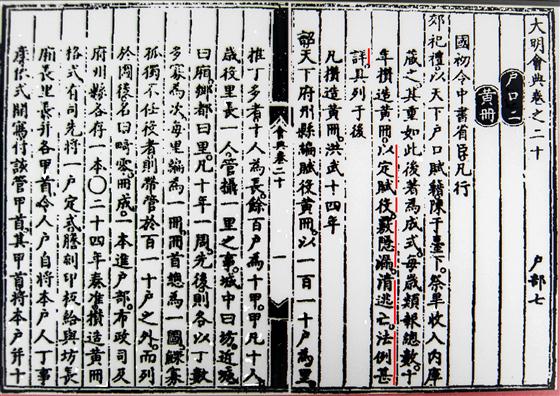 大明會典卷之二十
戶部七
戶口二
黃冊
國初令中書省臣凡行
郊祀禮。以天下戶口賦籍陳于臺下。祭畢收入内庫
藏之。其重如此。後著為成式。每歲類報總數。十
年攢造黃冊。以定賦役。覈隱漏。清逃亡。法例甚
詳。具列于後
凡攢造黃冊。洪武十四年
詔天下府州縣編賦役黃冊。以一百一十戶為里。
會典卷二十
一
推丁多者十人為長。餘百戶為十甲。甲凡十人。
歲役里長一人。管攝一里之事。城中曰坊。近城
曰廂。鄉都曰里。凡十年一周。先後則各以丁數
多寡為次。每里編為一冊。冊首總為一圖。鰥寡
孤獨不任役者。則帶管於百一十戶之外。而列
於圖後。名曰畸零。冊成。一本進戶部。布政司及
府州縣各存一本〇二十四年奏准攢造黃冊
格式。有司先將一戶定式謄刻印板。給與坊長
廂長里長并各甲首。令人戶自將本戶人丁事
產依式開寫。付該管甲首。其甲首將本戶并十